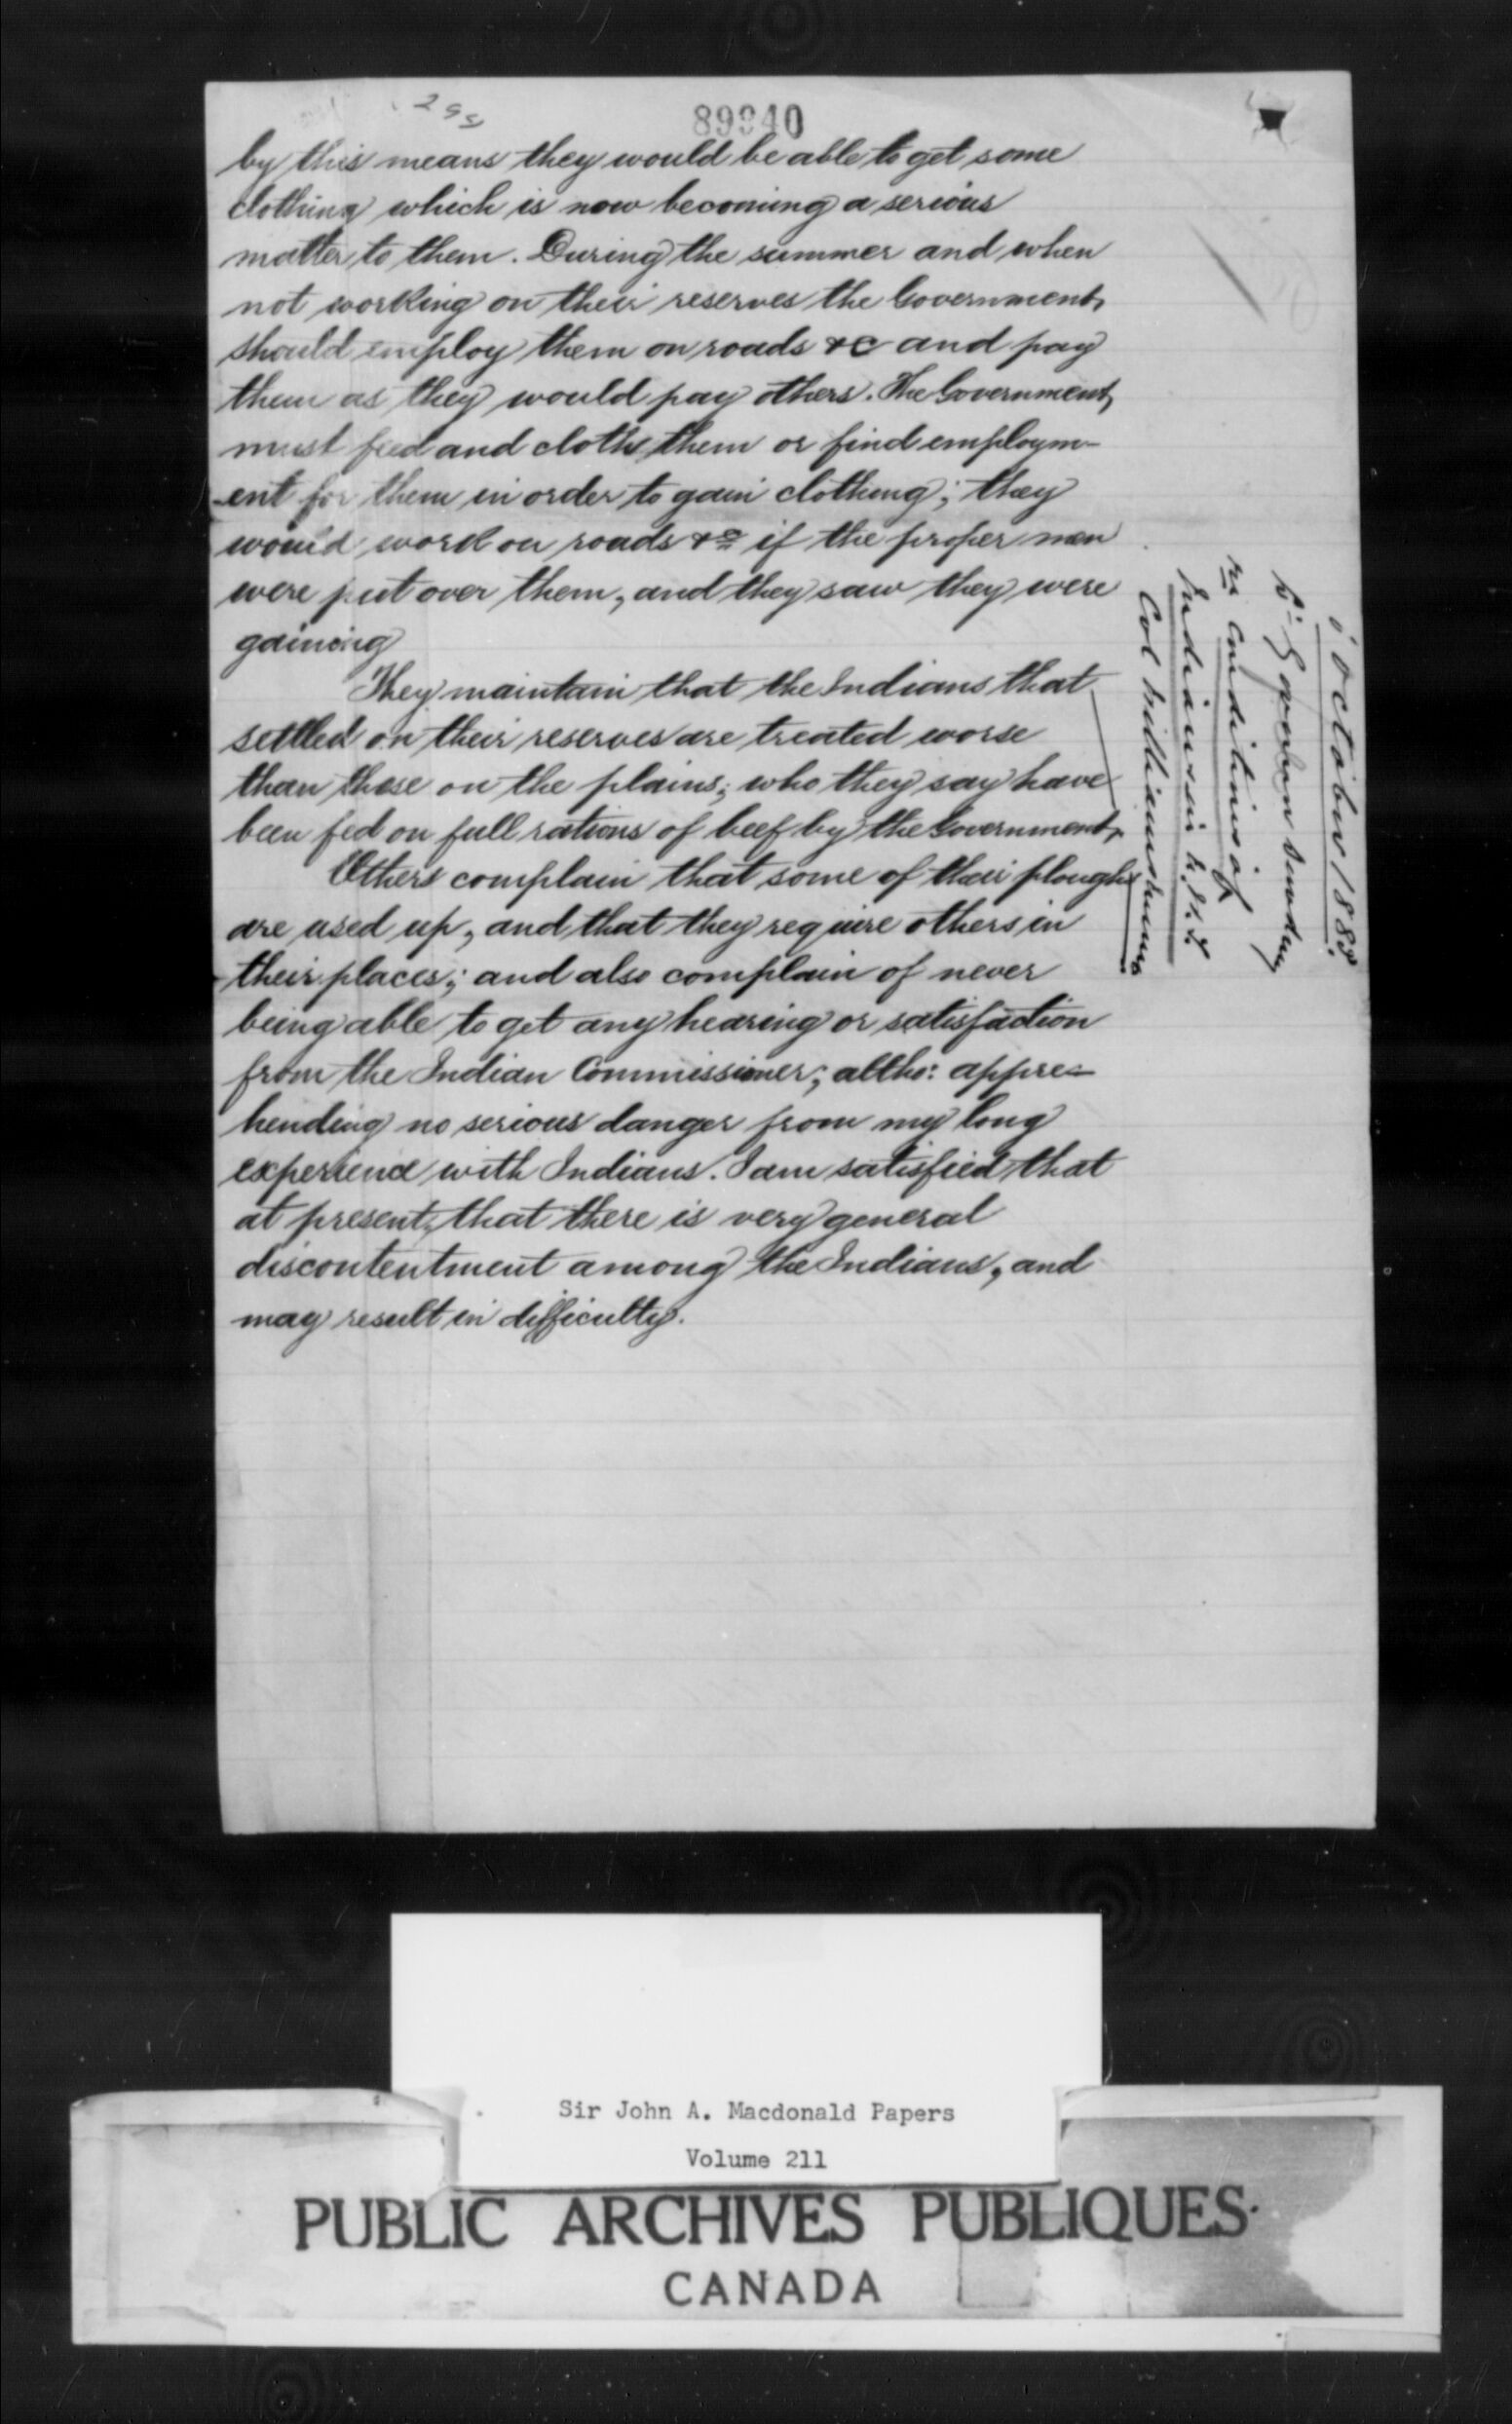 89940
by this means they would be able to get some
clothing which is now becoming a serious
matter to them. During the summer and when
not working on their reserves the Government,
should employ them on roads &c and pay
them as they would pay others. The Government,
must feed and clothe them or find employm-
-ent for them in order to gain clothing; they
would work on roads &c if the proper men
were put over them, and they saw they were
gaining
They maintain that the Indians that
settled on their reserves are treated worse
than those on the plains; who they say have
been fed on full rations of beef by the Government.
Others complain that some of their ploughs
are used up, and that they require others in
their places; and also complain of never
being able to get any hearing or satisfaction
from the Indian Commissioner; altho: appre=
hending no serious danger from my long
experience with Indians. I am satisfied that
at present, that there is very general
discontentment among the Indians, and
may result in difficulty.
October 1883
re condition of
Indians in N.W.T.
Col Williams
Sir John A. Macdonald Papers
Volume 211
PUBLIC ARCHIVES PUBLIQUES
CANADA